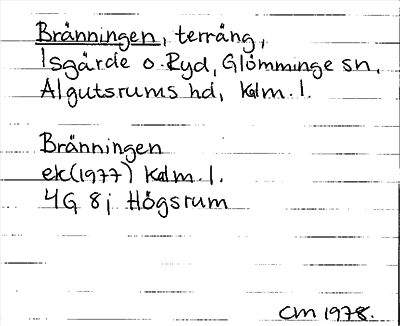 Bränningen, terräng,
Isgärde o. Ryd, Glömminge sn,
Algutsrums hd, Kalm. l.
Bränningen
ek(1977) Kalm. l.
4G 8j Högsrum
CM 1978.